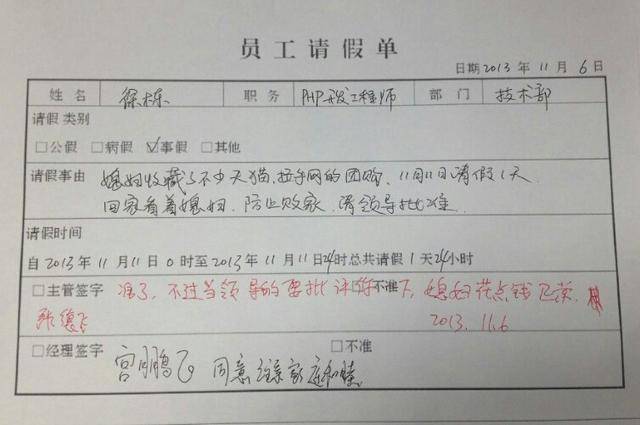 员工请假单
日期 2013 年 11 月 6 日
姓名 徐栋 职务 PHP开发工程师 部门 技术部
请假类别
□公假 □病假 ☑事假 □其他
请假事由 媳妇收藏了不少天猫、拉手网的团购，11月11日请假1天，
回家看着媳妇，防止败家，请领导批准。
请假时间
自 2013 年 11 月 11 日 0 时至 2013 年 11 月 11 日 24 时总共请假 1 天 24 小时
□主管签字 准了，不过当领导的要批评你下，媳妇花点钱 □不准
2013.11.6
□经理签字 □不准
宫鹏飞 同意 家庭和睦